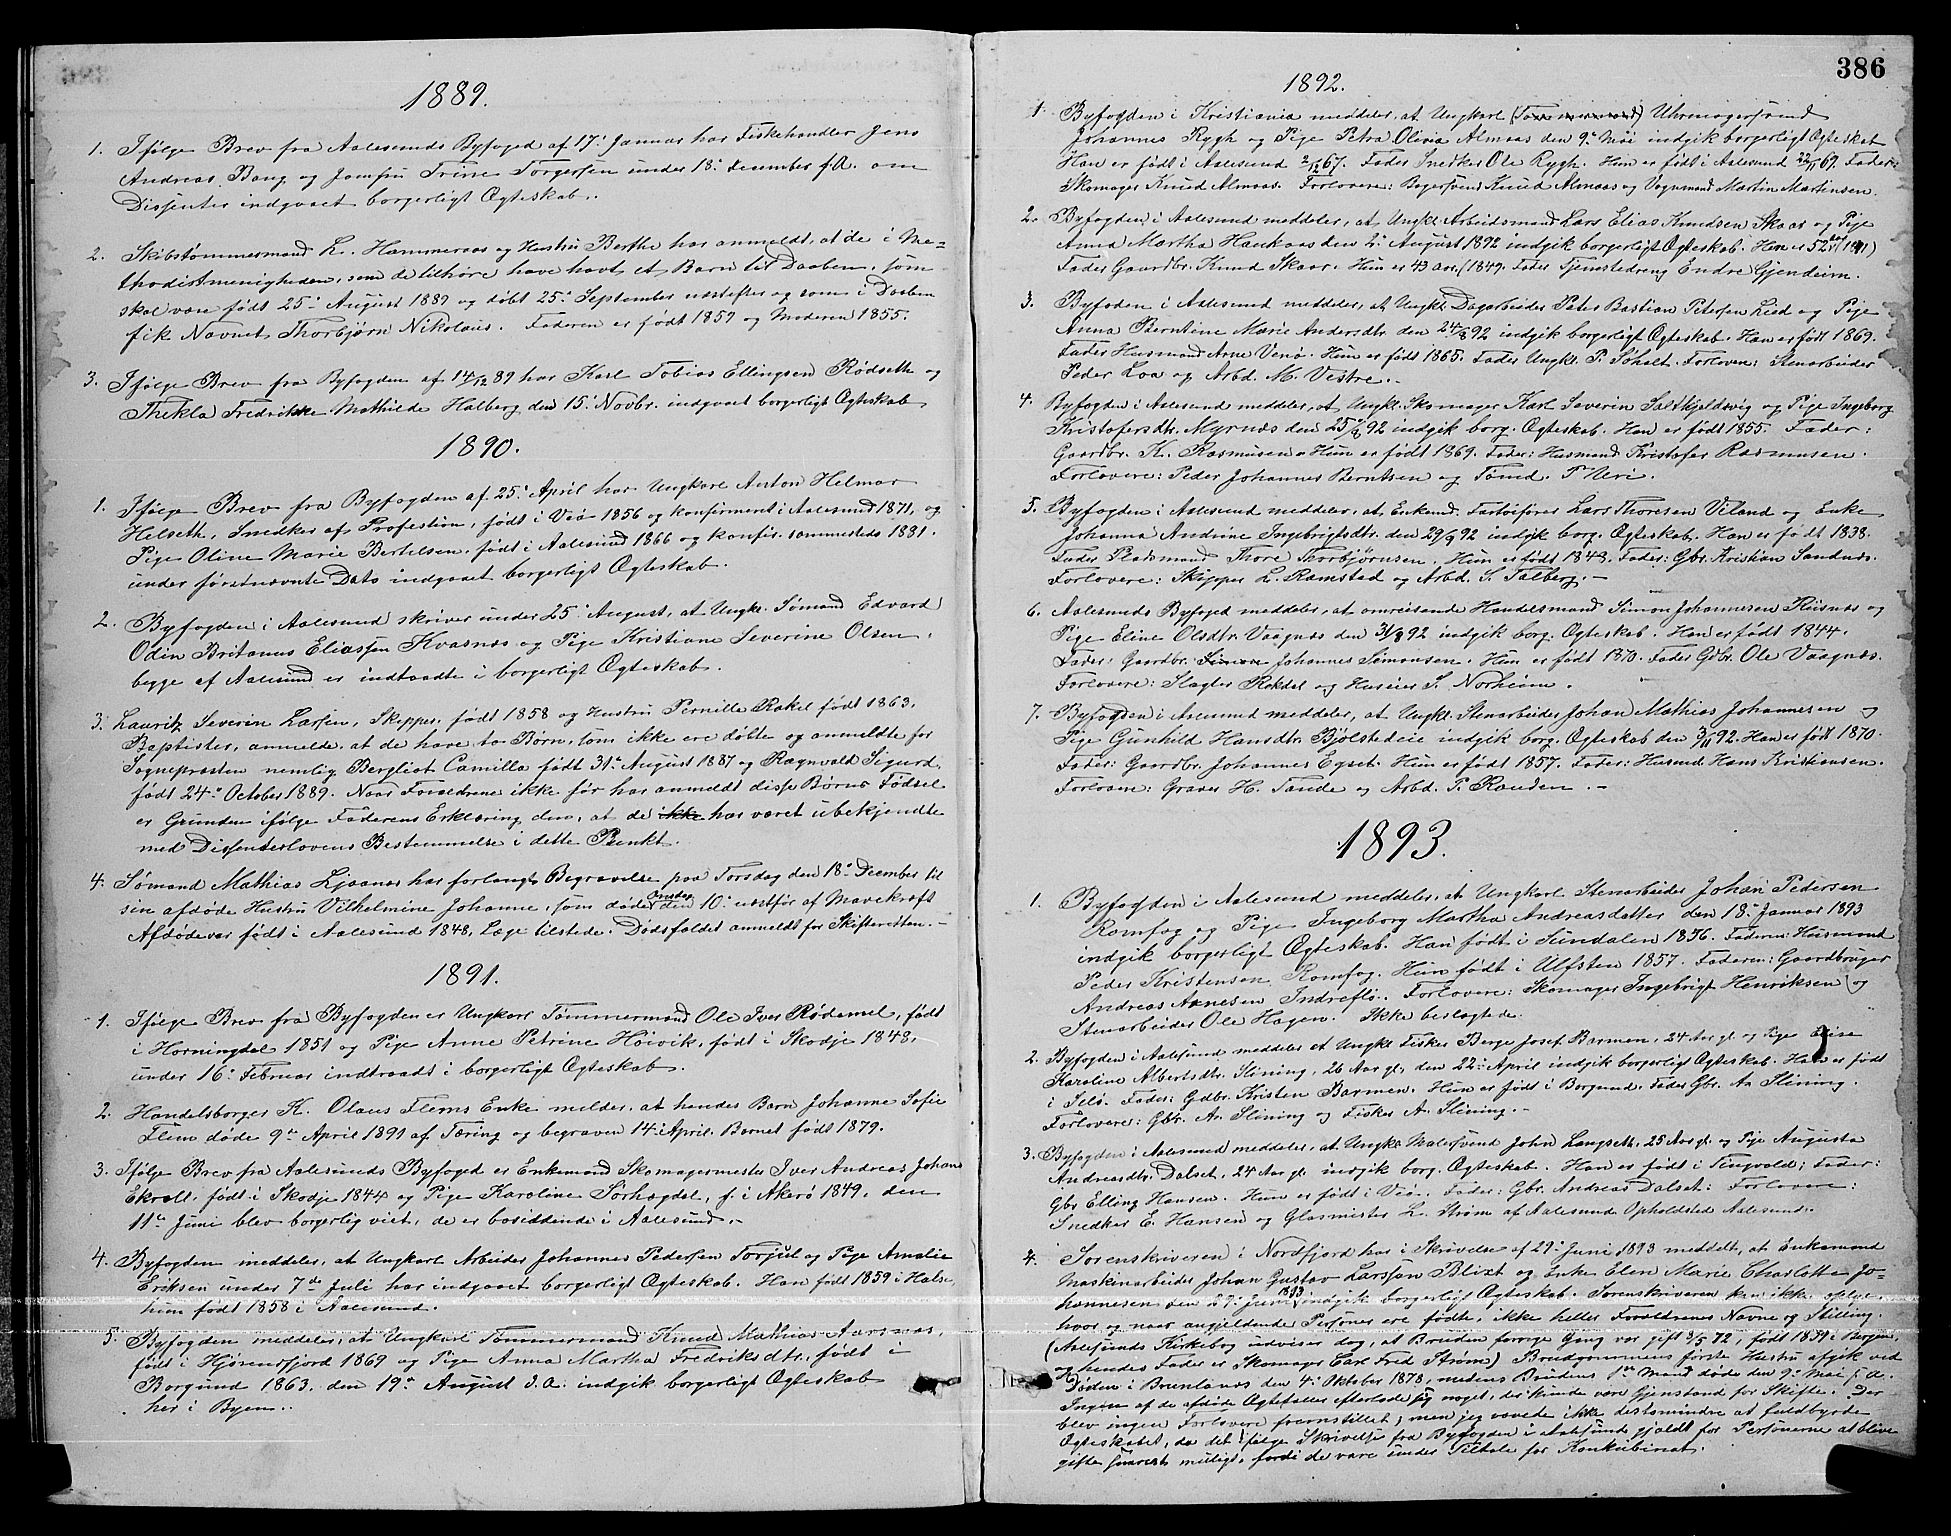 386
1889.
1. Ifølge Brev fra Aalesunds Byfoged af 17. Januar har Fiskehandler Jens
Andreas Bang og Jomfru Trine Torgersen under 18. December f. A. som
Dissenter indgaaet borgerligt Ægteskab.
2. Skibstømmermand L. Hammeraas og Hustru Berthe har anmeldt, at de i Me-
thodistmenigheden, som de tilhøre have havt et Barn til Daaben, som
skal være født 25. August 1889 og døbt 25. September næstefter og som i Daaben
fik Navnet Thorbjørn Nikolaus. Faderen er født 1859 og Moderen 1855.
3. Ifølge Brev fra Byfogden af 14/12 89 har Karl Tobias Ellingsen Rødseth og
Thekla Fredrikke Mathilde Halberg den 15. Novbr. indgaaet borgerligt Ægteskab
1890.
1. Ifølge Brev fra Byfogden af 25. April har Ungkarl Anton Helmar
Helseth, Snedker af Profession, født i Veø 1856 og konfirmert i Aalesund 1871, og
Pige Oline Marie Bertelsen, født i Aalesund 1866 og konfir. sammesteds 1881.
under førstnævnte Dato indgaaet borgerligt Ægteskab.
2. Byfogden i Aalesund skriver under 25. August, at Ungk. Sømand Edvard
Odin Britanus Eliassen Kvasnæs og Pige Kristiane Severine Olsen,
begge af Aalesund er indtraadte i borgerligt Ægteskab.
3. Lauritz Severin Larsen, Skipper, født 1858 og Hustru Pernille Rakel født 1863,
Baptister, anmelde, at de have to Børn, som ikke ere døbte og anmeldte for
Sognepræsten nemlig Bergliot Camilla født 31. August 1887 og Ragnvald Sigurd
født 24. October 1889. Naar Forældrene ikke før har anmeldt disse Børns Fødsel
er Grunden ifølge Faderens Erklæring den, at de ikke har været ubekjendte
med Dissenterlovens Bestemmelse i dette Punkt.
4. Sømand Mathias Ljaanes har forlangt Begravelse paa Torsdag den 18. December til
sin afdøde Hustru Vilhelmine Johanne, som døde Onsdag den 10. næstfør af Mavekræft
Afdøde var født i Aalesund 1848. Læge tilstede. Dødsfaldet anmeldt for Skifteretten.
1891.
1. Ifølge Brev fra Byfogden er Ungkarl Tømmermand Ole Iver Rødemel, født
i Horningdal 1851 og Pige Anne Petrine Høivik, født i Skodje 1848,
under 16. Februar indtraadt i borgerligt Ægteskab.
2. Handelsborger K. Olaus Flems Enke melder, at hendes Barn Johanne Sofie
Flem døde 9de April 1891 af Tæring og begraven 14. April. Barnet født 1879.
3. Ifølge Brev fra Aalesunds Byfoged er Enkemand Skomagermester Iver Andreas Johan
Ekroll, født i Skodje 1844 og Pige Karoline Sørhægdel, f. i Akerø 1849, den
11te Juni blev borgerlig viet, de er bosiddende i Aalesund.
4. Byfogden meddeler, at Ungkarl Arbeider Johannes Pedersen Torjul og Pige Amalie
Eriksen under 7de Juli har indgaaet borgerligt Ægteskab. Han født 1859 i Halse,
hun født 1858 i Aalesund.
5. Byfogden meddeler, at Ungkarl Tømmermand Knud Mathias Aarsnæs,
født i Hjørendfjord 1869 og Pige Anna Martha Fredriksdtr., født i
Borgund 1863, den 19. August d. A. indgik borgerligt Ægteskab
her i Byen.
1892.
1. Byfogden i Kristiania meddeler, at Ungkarl Uhrmagersvend
Johannes Rygh og Pige Petra Olivia Almaas den 9. Mai indgik borgerligt Ægteskab
Han er født i Aalesund 2/12 67. Fader Snedker Ole Rygh. Hun er født i Aalesund 22/11 67. Fader:
Skomager Knud Almaas. Forlovere: Bagersvend Knud Almaas og Vognmand Martin Martinsen.
2. Byfogden i Aalesund meddeler, at Ungkl. Arbeidsmand Lars Elias Knudsen Skaar og Pige
Anna Martha Haukaas den 2. August 1892 indgik borgerligt Ægteskab. Han er 52 aar
Fader Gaardbr. Knud Skaar. Hun er 43 Aar (1849. Fader Tjenstedreng Endre Gjendem.
3. Byfogden i Aalesund meddeler, at Ungkl. Dagarbeider Peter Bastian Petersen Lied og Pige
Anna Berntine Marie Andersdtr. den 24/8 92 indgik borgerligt Ægteskab. Han er født 1869.
Fader Husmand Arne Venø. Hun er født 1865. Fader Ungkl. P. Søholt. Forlovere: Stenarbeider
Peder Loa og Arbd. M. Vestre.
4. Byfogden i Aalesund meddeler, at Ungkl. Skomager Karl Severin Saltkjeldsvig og Pige Ingeborg
Kristofersdtr. Myrnæs den 25/8 92 indgik borg. Ægteskab. Han er født 1855. Fader:
Gaardbr. K. Rasmusen. Hun er født 1869. Fader: Husmand Kristofer Rasmusen.
Forlovere: Peder Johannes Berntsen og Tømd. P. Neri.
5. Byfogden i Aalesund meddeler, at Enkemd. Fartøifører Lars Thoresen Viland og Enke
Johanna Andrine Ingebrigtsdtr. den 29/9 92 indgik borg. Ægteskab. Han er født 1838.
Fader Pladsmand Thore Thorbjørnsen. Hun er født 1848. Fader: Gbr. Kristian Sandnæs.
Forlovere: Skipper L. Ramstad og Arbd. S. Talberg.
6. Aalesunds Byfoged meddeler, at omreisende Handelsmand Simon Johannesen Risnæs og
Pige Eline Olsdtr. Vaagnæs den 31/8 92 indgik borg. Ægteskab. Han er født 1844.
Fader: Gaardbr. Simon Johannes Simonsen. Hun er født 1870. Fader Gdbr. Ole Vaagnæs.
Forlovere: Slagter Rekdal og Huseier S. Norheim.
7. Byfogden i Aalesund meddeler, at Ungkl. Stenarbeider Johan Mathias Johannesen og
Pige Gunhild Hansdtr. Bjølstedeie indgik borg. Ægteskab den 3/11 92. Han er født 1870.
Fader: Gaardbr. Johannes Egset. Hun er født 1857. Fader: Husmd. Hans Kristiansen.
Forlovere: Graver H. Tande og Arbd. P. Randen.
1893.
1. Byfogden i Aalesund meddeler, at Ungkarl Stenarbeider Johan Pedersen
Romfog og Pige Ingeborg Martha Andreasdatter den 18. Januar 1893
indgik borgerligt Ægteskab. Han født i Sundalen 1836. Faderen: Husmand
Peder Kristensen Romfog. Hun født i Ulfsten 1857. Faderen: Gaardbruger
Andreas Arnesen Indreflø. Forlovere: Skomager Ingebrigt Henriksen og
Stenarbeider Ole Hagen. Ikke beslægtede.
2. Byfogden i Aalesund meddeler at Ungkl. Fisker Berge Josef Barmen, 24 Aar gl. og Pige Elise
Karoline Albertsdtr. Slining, 26 Aar gl. den 22. April indgik borgerligt Ægteskab. Han er født
i Selø. Fader: Gdbr. Kristen Barmen. Hun er født i Borgund. Fader Gbr. A. Slining.
Forlovere: Gbr. A. Slining og Fisker A. Slining.
3. Byfogden i Aalesund meddeler, at Ungkl. Malersvend John Langseth, 25 Aar gl. og Pige Augusta
Andreasdtr. Dalset, 24 Aar gl. indgik borg. Ægteskab. Han er født i Tingvold; Fader:
Gbr. Elling Hansen. Hun er født i Veø. Fader: Gbr. Andreas Dalset. Forlovere:
Snedker E. Hansen og Glasmester L. Strøm af Aalesund. Opholdsted Aalesund.
4. Sorenskriveren i Nordfjord har i Skrivelse af 29. Juni 1893 meddelt, at Enkemand
Maskinarbeider Johan Gustav Larsson Blixt og Enke Elen Marie Charlotte Jo-
hannesen den 29. Juni 1893 indgik borgerligt Ægteskab. Sorenskriveren kan ikke oplyse
hvor og naar angjeldende Personer ere fødte, ikke heller Forældrenes Navne og Stilling
(Aalesunds Kirkebog udviser dog, at Bruden forrige Gang var gift 3/5 72, født i Bergen,
og hendes Fader er Skomager Carl Fred Strøm) Brudgommens første Hustru afgik ved
Døden i Brunlanes den 4. Oktober 1878, medens Brudens 1ste Mand døde den 9. Mai f. A.
Ingen af de afdøde Ægtefæller efterlode sig noget, der kunde være Gjenstand for Skifte. Der
blev ingen Forlovere fremstillet, men jeg vovede ikke destomindre at fuldbyrde
Ægteskabet, da det ifølge Skrivelse fra Byfogden i Aalesund gjaldt for Personerne at blive
gifte snarest muligt, fordi de vare under Tiltale for Konkubinat.